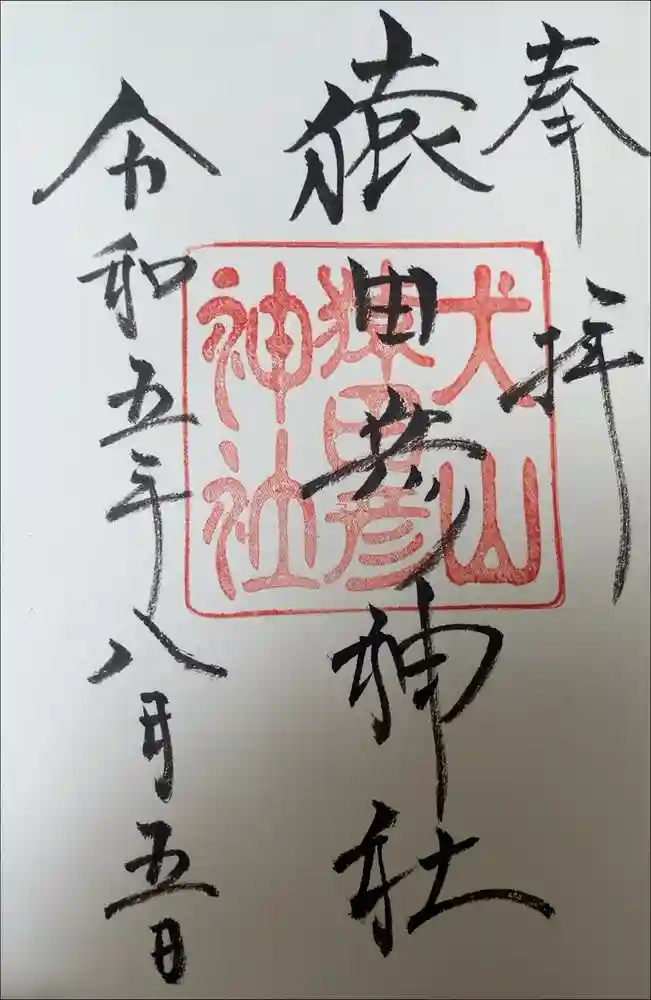 奉拝
猿田彦神社
令和五年八月五日
犬山
猿田彦
神社